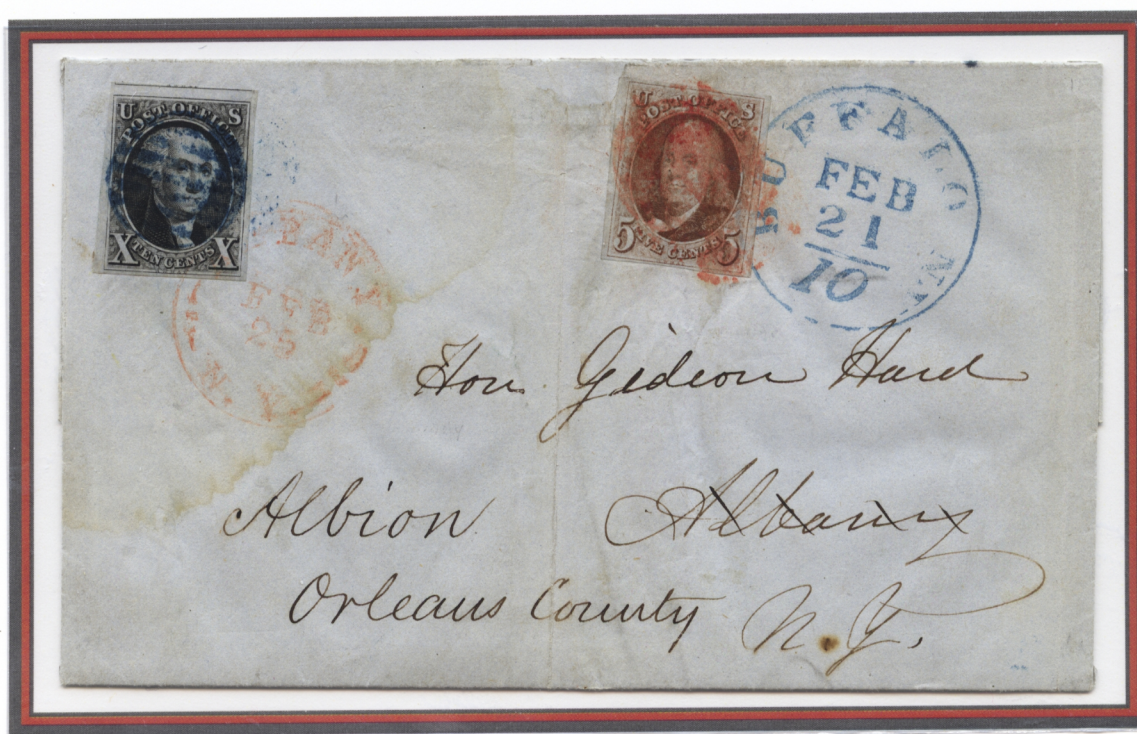 U S
POST OFFICE
X X
TEN CENTS
U S
POST OFFICE
5 5
FIVE CENTS
BUFFALO N.Y.
FEB
21
10
FEB
25
N.Y.
Hon Gideon Hard
Albion Albany
Orleans County N.Y.